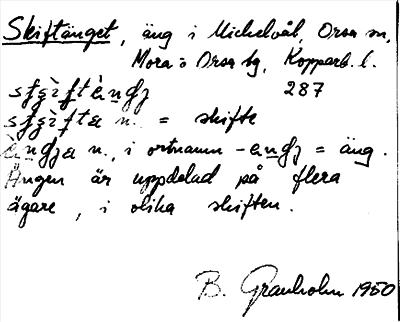 Skiftänget, äng i Michelvål, Orsa sn,
Mora o Orsa tg, Kopparb. l.
287
n. = skifte
n., i ortnamn = äng.
Ängen är uppdelad på flera
ägare, i olika skiften.
B. Granholm 1950